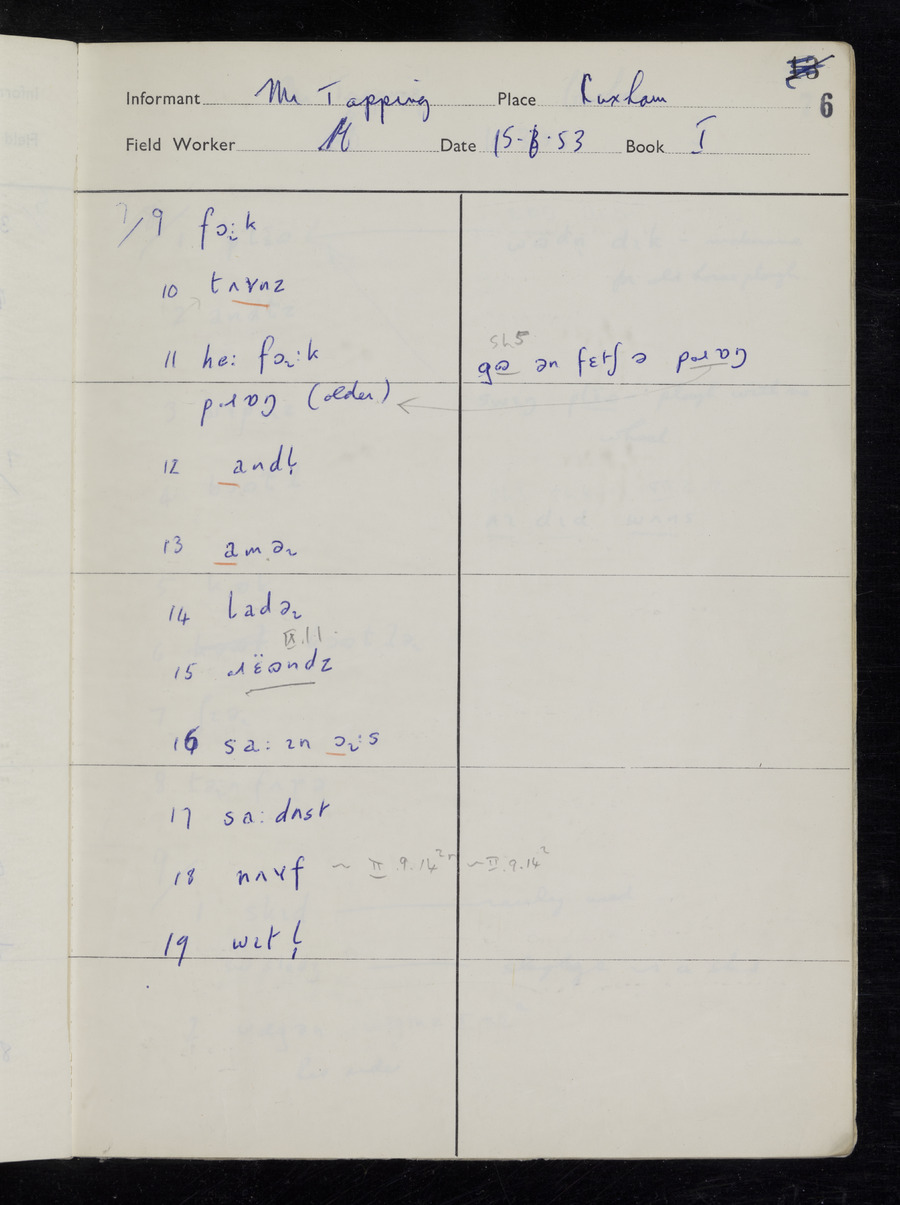 13
6
Informant Mr Tapping Place Cuxham
Field Worker Date 15-8-53 Book I
7/9 fɔ˞:k
10 tʌɤnz
11 he: fɔ˞:k
sh5
pɹɒŋ (older)
12 andl̩
13 amə˞
14 ladə˞
IX.11.
15 ɹɛ̈ɷndz
16 sa: ɪn ɔ˞:s
17 sa: dʌst
18 nʌɤf ~ II.9.14² ~ II.9.14²
19 wɪtl̩